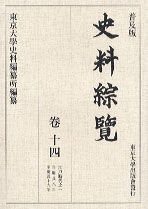 東京大學史料編纂所編纂
普及版
史料綜覽
卷十四
東京大學出版會發行